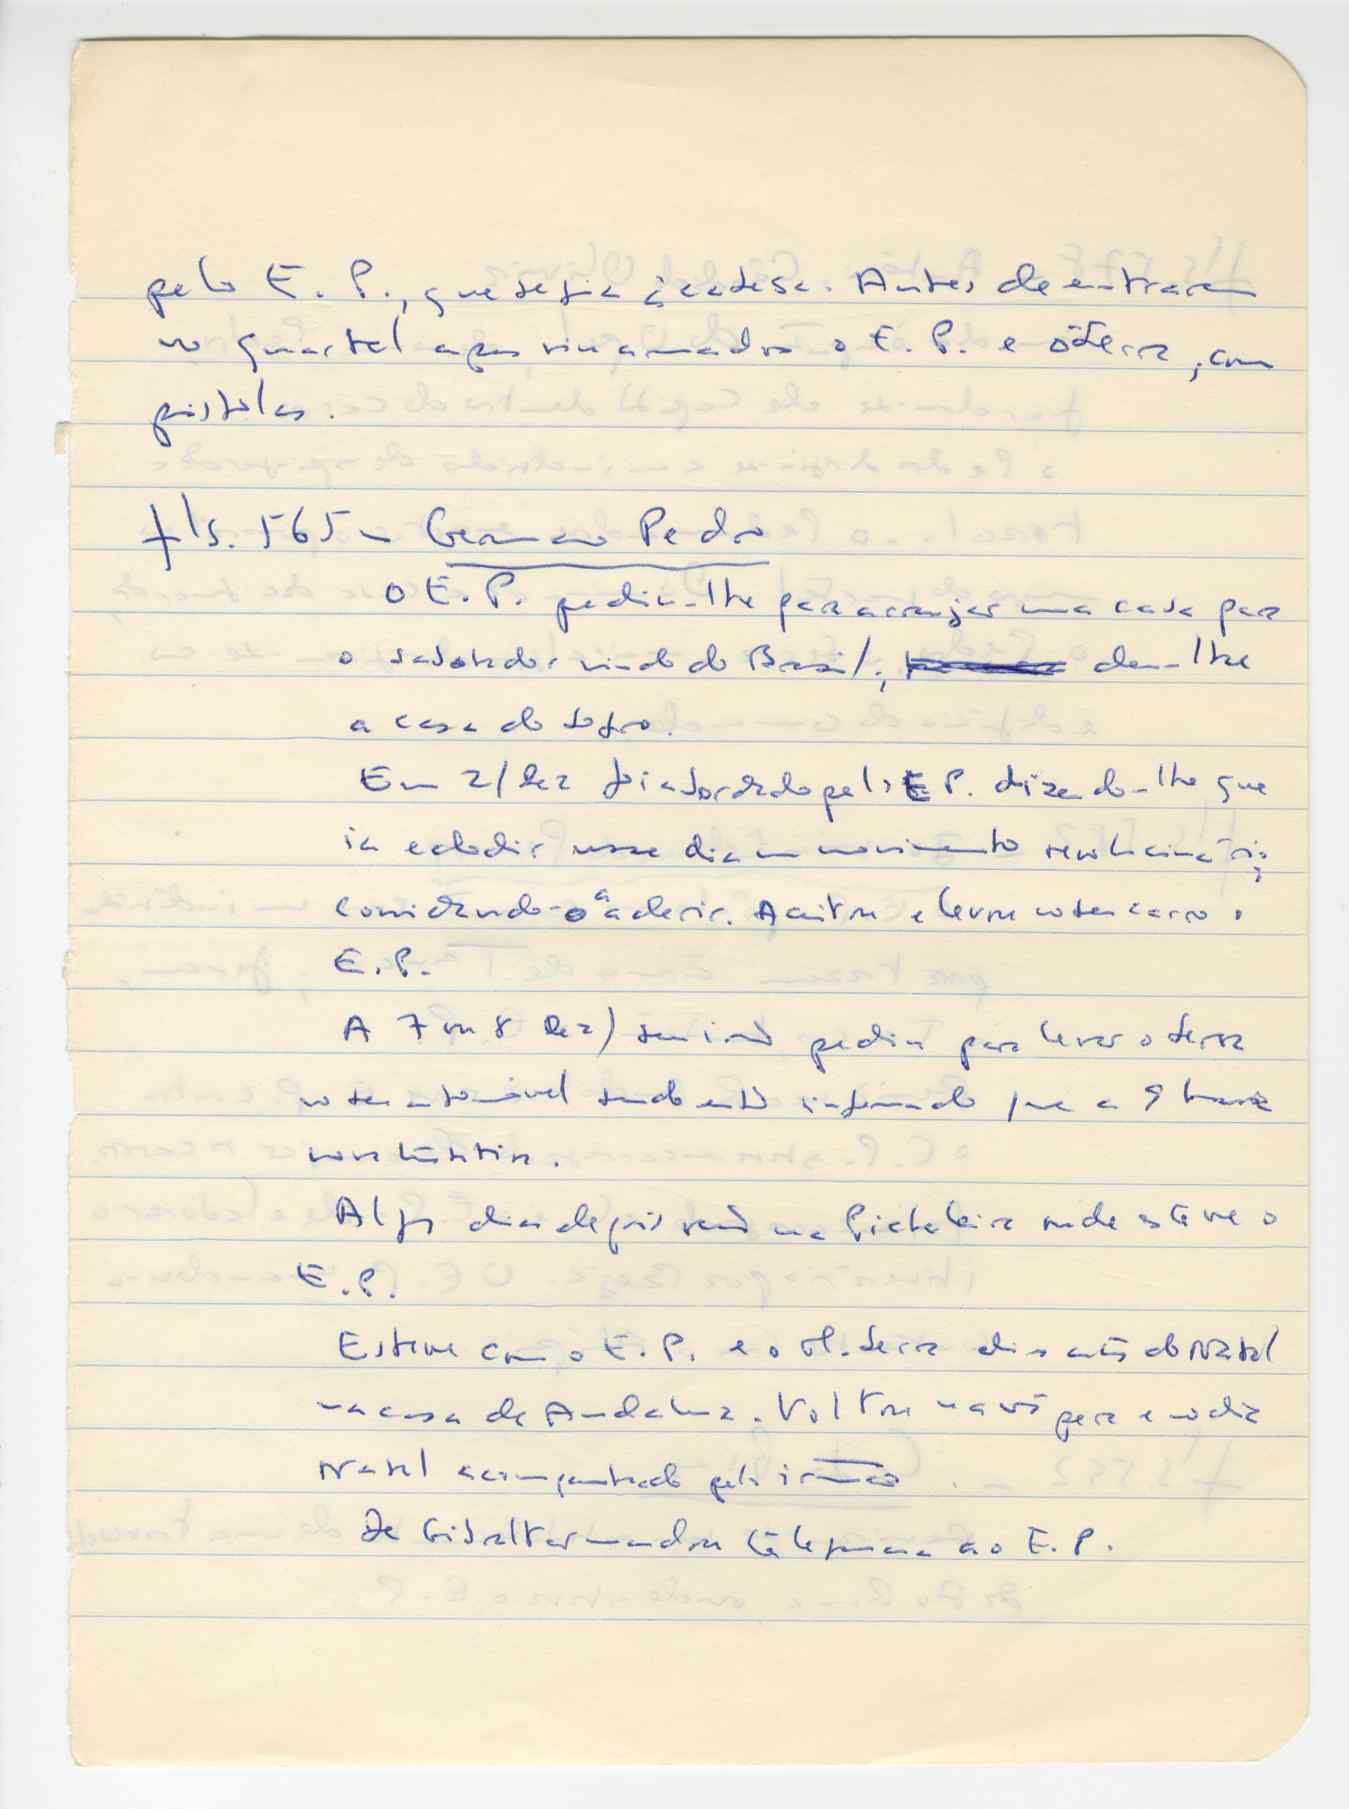 pelo E. P., que seguia à cabeça. Antes de entrarem
no quartel apenas viu armados o E. P. e o Serra, com
pistolas.
fls. 565 - Germano Pedro
O E. P. pediu-lhe para arranjar uma casa para
o sabotador vindo do Brasil, deu-lhe
a casa do sogro.
Em 31/Dez foi abordado pelo E P. dizendo-lhe que
ia eclodir nesse dia um movimento revolucionário,
convidando-o a aderir. Aceitou e levou no seu carro o
E. P.
A 7 ou 8 Dez) seu irmão pediu para levar o Serra
no seu automóvel sendo então informado que a 9 haveria
nova tentativa.
Alguns dias depois na Picheleira onde esteve o
E. P.
Esteve com o E. P. e o M. Serra dias antes do Natal
na casa de Andaluz. Voltou na véspera e no dia
Natal acompanhado pelo irmão.
De Gibraltar mandou telegrama ao E. P.